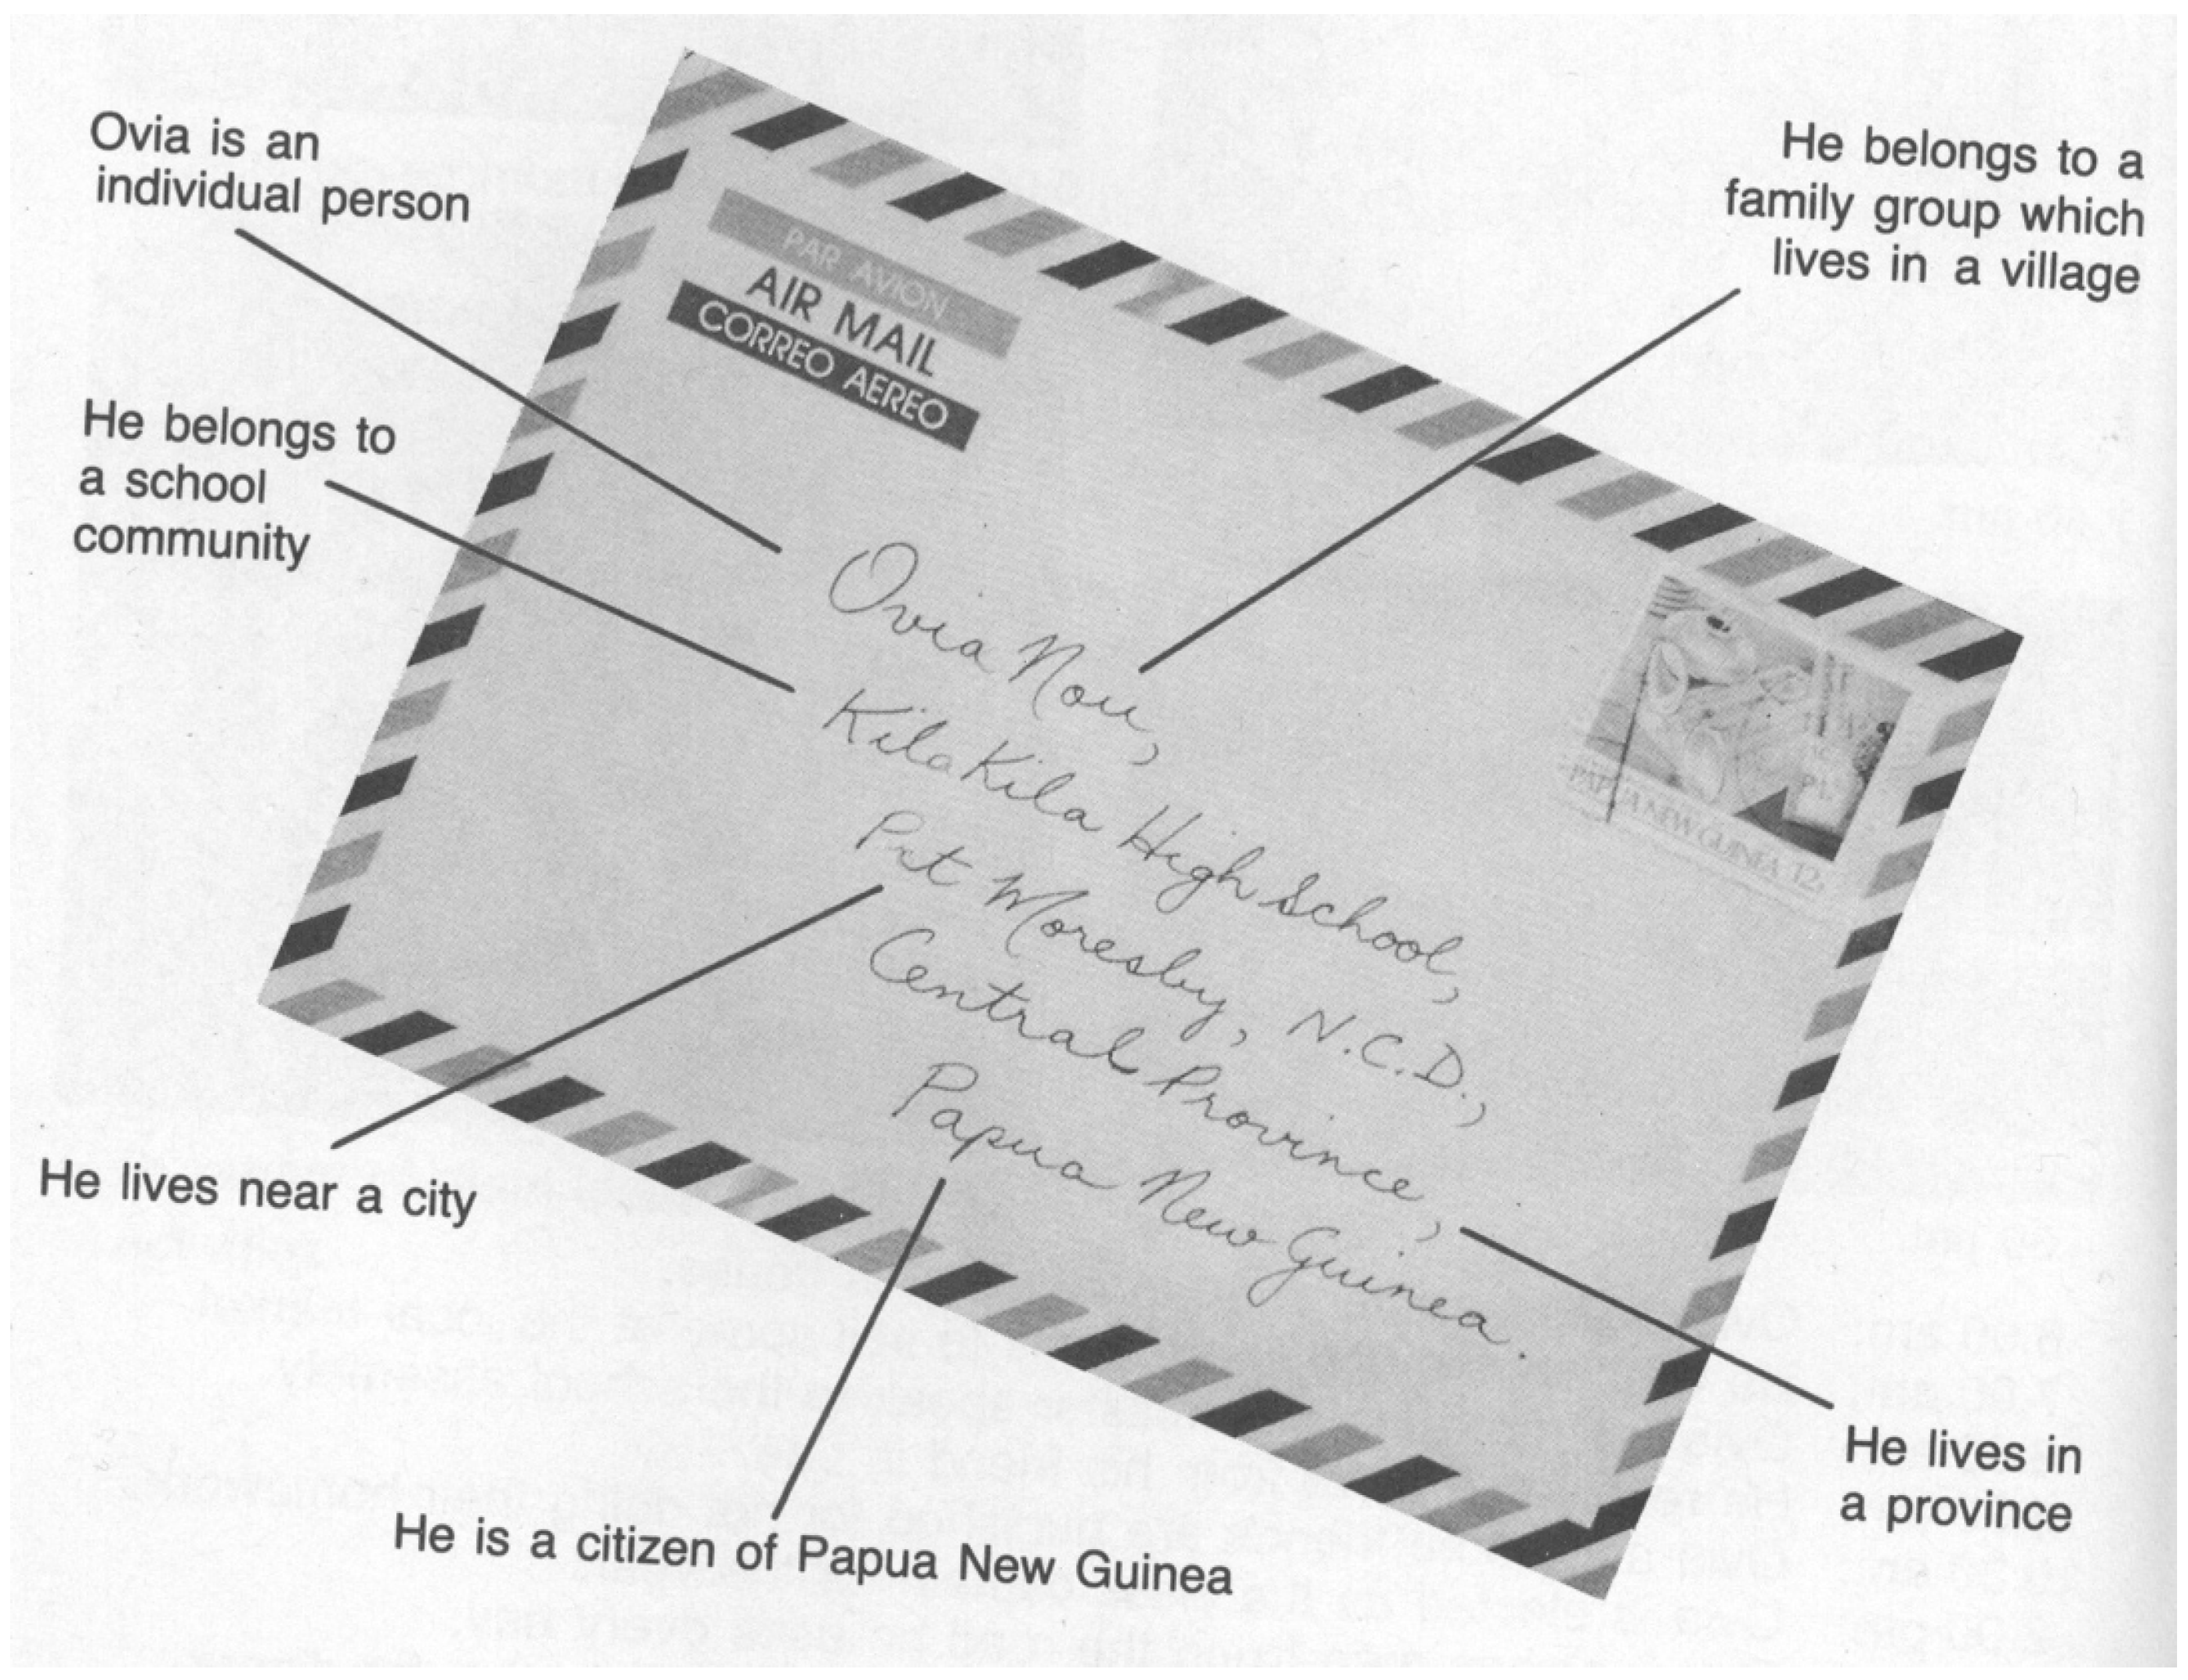 Ovia is an
individual person
He belongs to a
family group which
lives in a village
He belongs to
a school
community
PAR AVION
AIR MAIL
CORREO AEREO
Ovia Nou,
Kila Kila High School,
Pt Moresby, N.C.D.,
Central Province,
Papua New Guinea.
PAPUA NEW GUINEA 12
He lives near a city
He lives in
a province
He is a citizen of Papua New Guinea